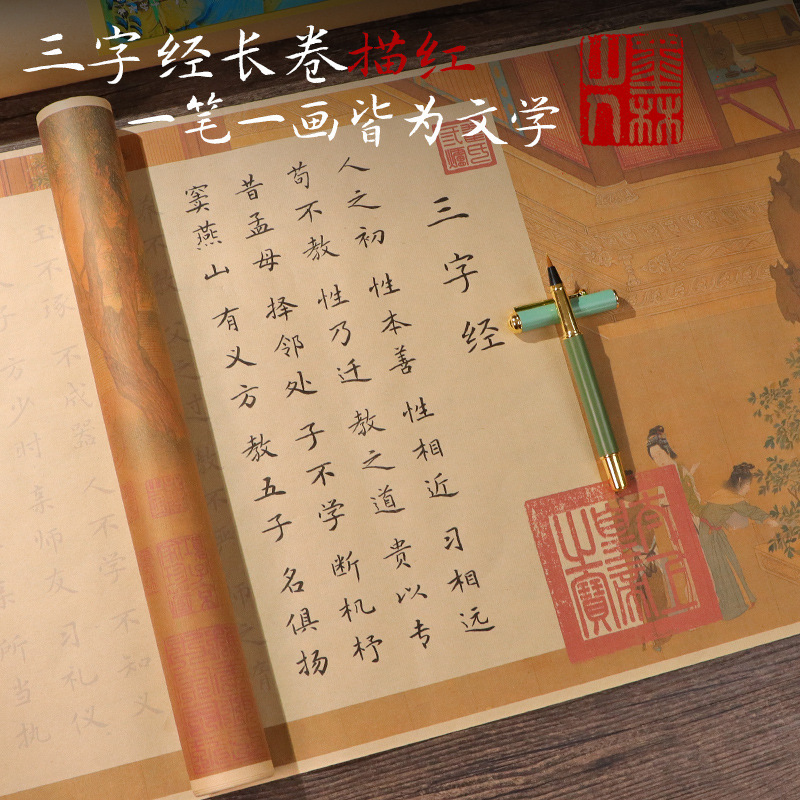 三字经长卷描红
一笔一画皆为文学
墨林山人
三字经
人之初 性本善 性相近 习相远
苟不教 性乃迁 教之道 贵以专
昔孟母 择邻处 子不学 断机杼
窦燕山 有义方 教五子 名俱扬
玉不琢 不成器 人不学 不知义
人子 方少时 亲师友 习礼仪
所当执